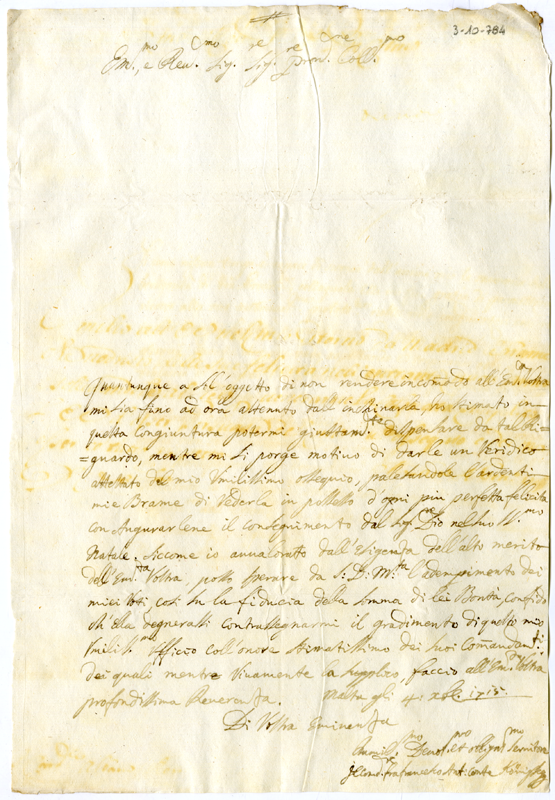 3-10-784
Em.mo e Rev.mo Sig.re Sig.re Pron.ne Coll.mo
Quantunque a sol' oggetto di non rendere incomodo all' Em.a Vostra
mi sia fino ad ora astenuto dall' inchinarla, ho stimato in
questa congiuntura potermi giustam.te dispensare da tal ri=
=guardo, mentre mi si porge motivo di darle un veridico
attestato del mio umilissimo ossequio, palesandole l'ardenti
mie Brame di Vederla in possesso d'ogni piu perfetta felicità
con Augurarlene il conseguimento dal Sig.re Dio nel suo SS.mo
Natale. Siccome io avvalorato dall' Esigenza dell' alto merito
dell' Em.za Vostra, posso sperare da S: D: M.tà l'adempimento dei
miei Voti, così su la fiducia della somma di lei Bontà, confido
ch' Ella degnerassi contrassegnarmi il gradimento di questo mio
umiliss.mo Ufficio coll' onore stimatissimo dei suoi Comandam.ti
dei quali mentre Vivamente la supplico, faccio all' Em.za Vostra
profondissima Reverenza. Malta gli 4. Xbre 1715.
Di Vostra Eminenza
Umiliss.mo Devot.mo et obligat.mo Servitore